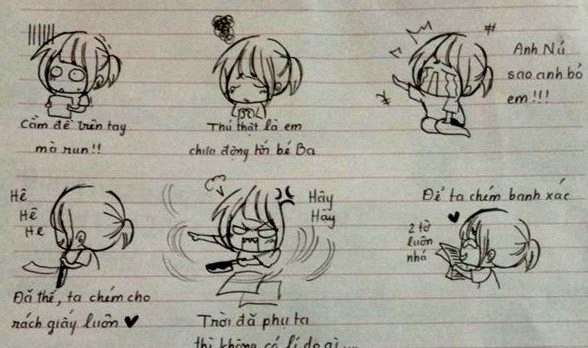 Cầm đề trên tay
mà run!!
Thú thật là em
chưa động tới bé Ba
Anh Nú
sao anh bỏ
em!!!
Hê
Hê
Hê
Đã thế, ta chém cho
rách giấy luôn
Hây
Hây
Trời đã phụ ta
thì không có lí do gì...
Để ta chém banh xác
2 tờ
luôn
nhá